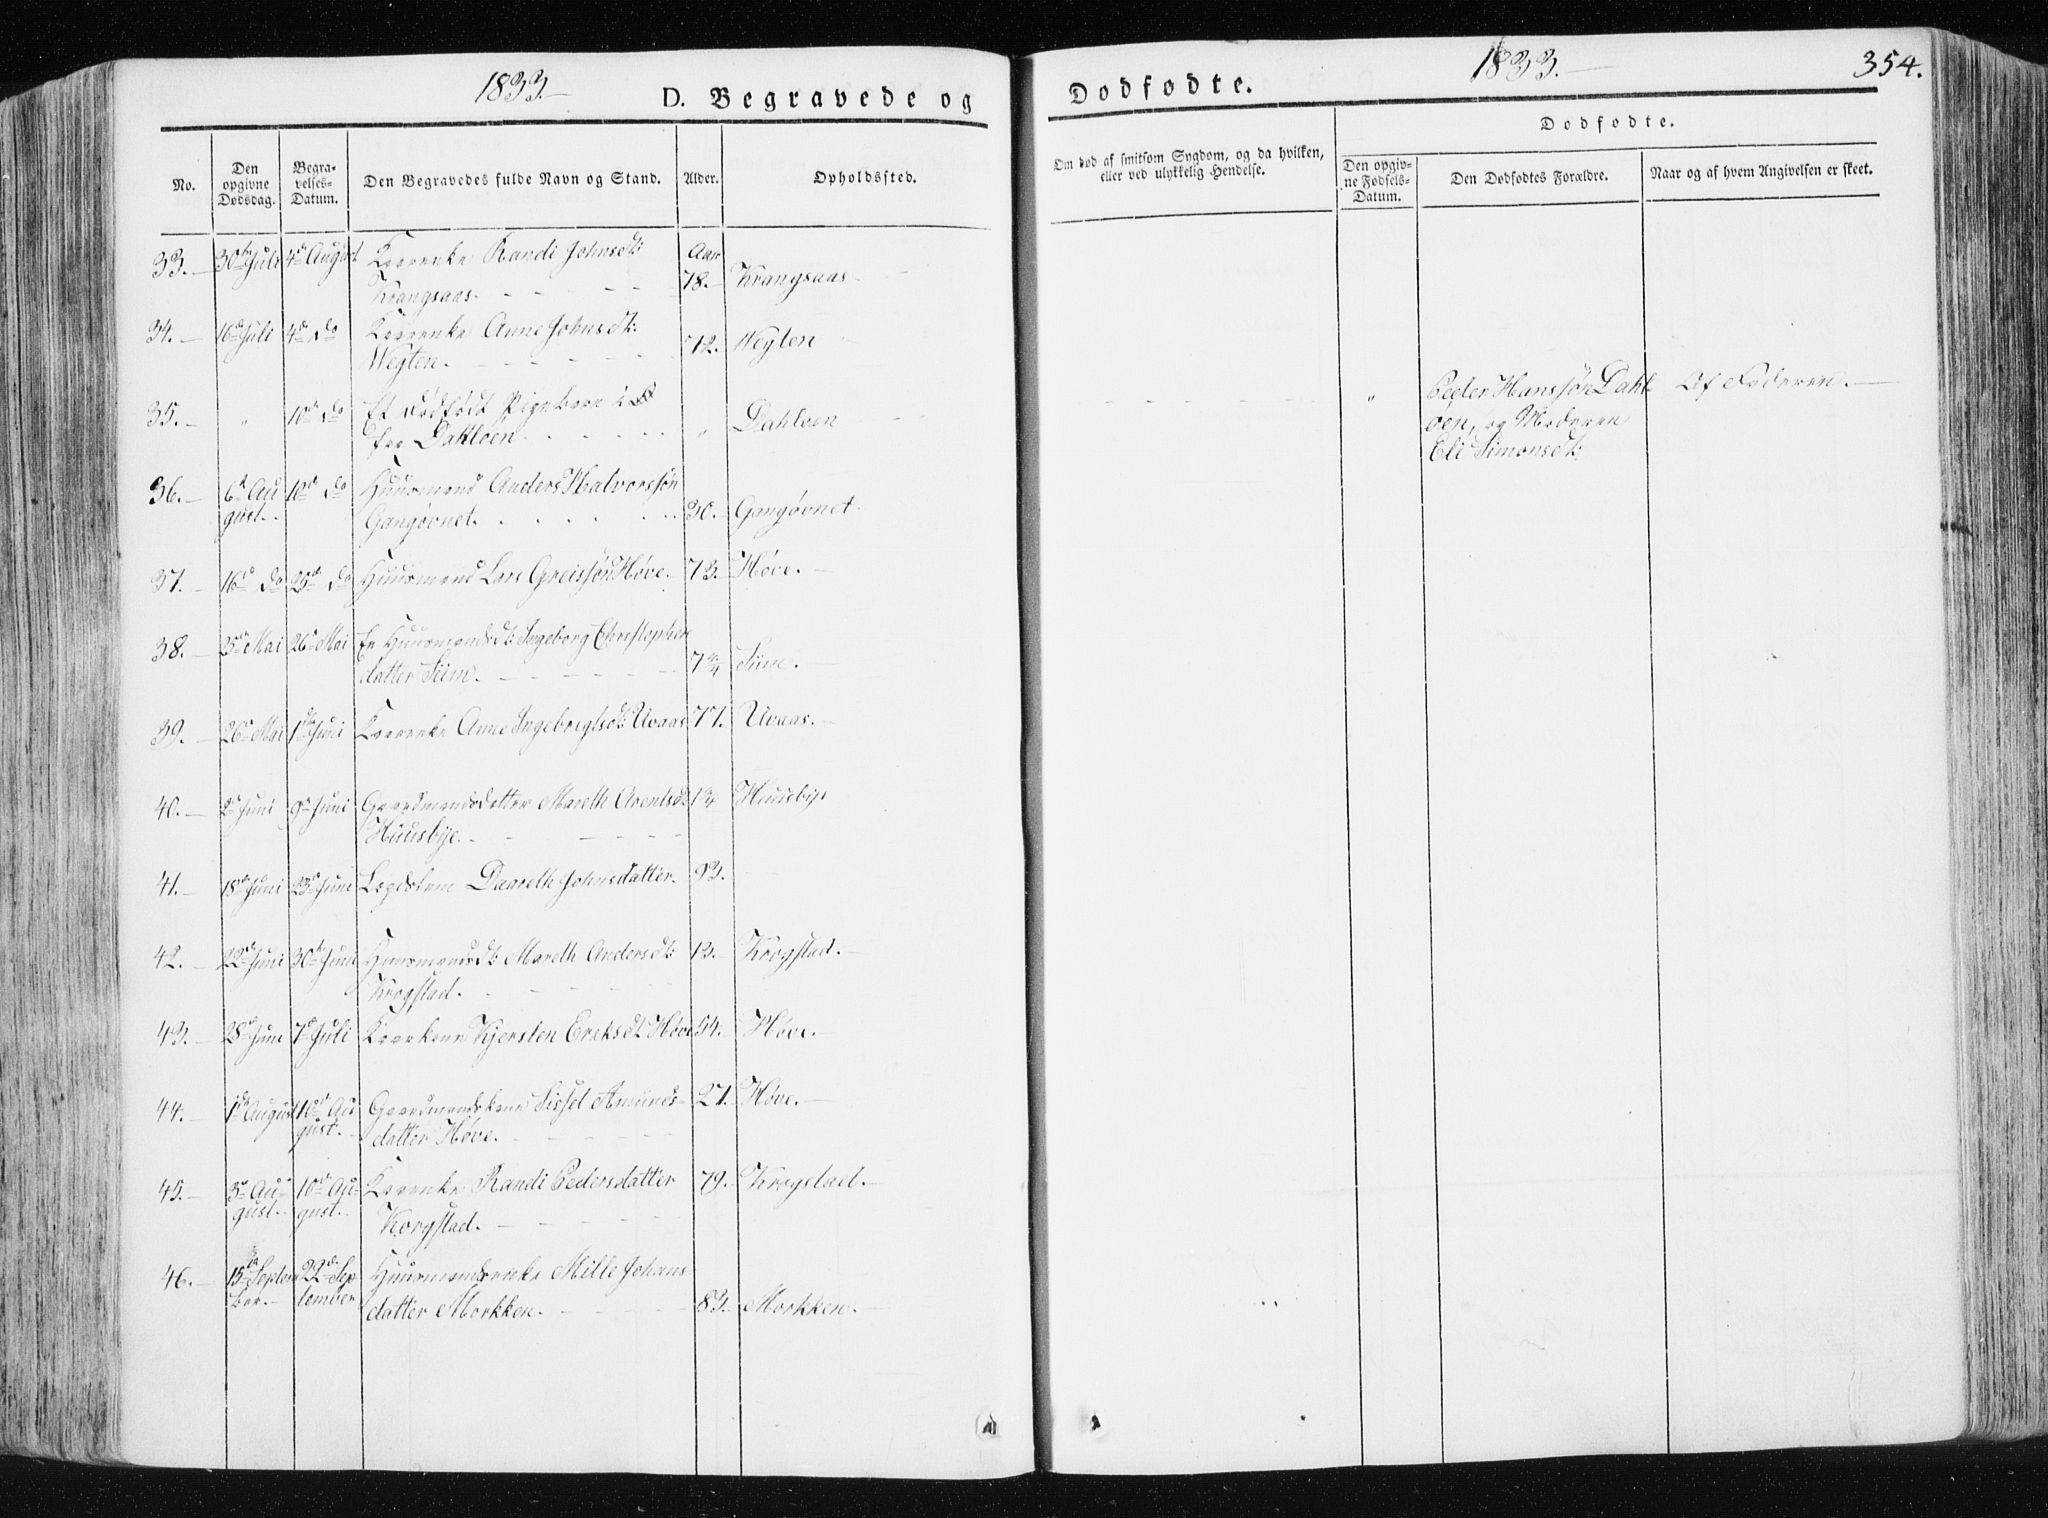 1833.
D. Begravede og
Dødfødte.
1833.
354.
No.
Den opgivne Dødsdag.
Begravelses-Datum.
Den Begravedes fulde Navn og Stand.
Alder.
Opholdssted.
Om død af smitsom Sygdom, og da hvilken,
eller ved ulykkelig Hendelse.
Dødfødte.
Den opgivne Fødsels-Datum.
Den Dødfødtes Forældre.
Naar og af hvem Angivelsen er skeet.
33. 30te Juli 4de August Randi Johnsdt: Aar
Krangsaas. 78. Krangsaas
34. 16de Juli 4de do Anne Johnsdt:
Wegten. 72. Wegten
35. " 10de do Et dødfødt Pigebarn
fra Dahløen. " Dahløen
" Peder Hanssøn Dahl-
øen, og Moderen
Eli Simonsdt:
Af Faderen.
36. 6te Au- 10de do Huusmand Anders Halvorssøn
gust. Gangøvnet. 30. Gangøvnet
37. 16de do 25de do Huusmand Lars Greissøn Høve. 73. Høve.
38. 25de Mai 26de Mai En Huusmandsdt: Ingeborg Christopher
datter Siim. 7 Siim.
39. 26de Mai 1ste Juni Anne Ingebrigtsdt: Uvaas 77. Uvaas.
40. 2den Juni 9de Juni Gaardmandsdatter Mareth Arentsdt Huusbye
Huusbye.
41. 18de Juni 23de Juni Lægdslem Daareth Johnsdatter. 93.
42. 22de Juni 30de Juni Huusmandsdt: Mareth Andersdt: 13. Krogstad.
Krogstad.
43. 28de Juni 7de Juli Kjersten Eriksdt Høve 54. Høve.
44. 1ste August 10de Au- Gaardmandskone Sissel Amunds- 27. Høve.
gust. datter Høve.
45. 3de Au- 10de Au- Randi Pedersdatter 79. Krogstad.
gust. gust. Korgstad.
46. 15de Septem- 22de Sep- Huusmandsenke Mille Johans-
ber. tember datter Morkken. 83. Morkken.